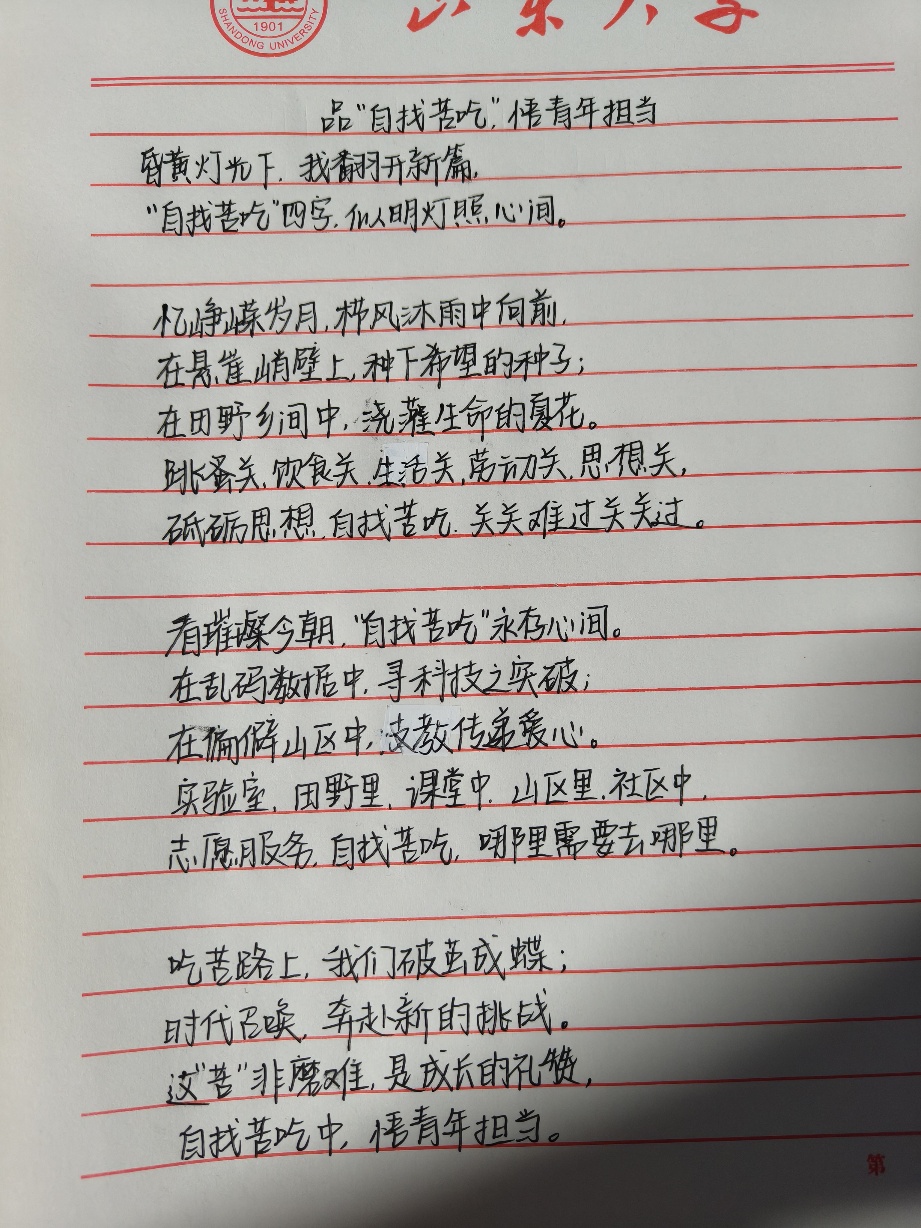 1901
SHANDONG UNIVERSITY
山东大学
品“自找苦吃”,悟青年担当
昏黄灯光下,我翻开新篇,
“自找苦吃”四字,似明灯照心间。
忆峥嵘岁月,栉风沐雨中向前,
在悬崖峭壁上,种下希望的种子;
在田野乡间中,浇灌生命的夏花。
跳蚤关,饮食关,生活关,劳动关,思想关,
砥砺思想,自找苦吃,关关难过关关过。
看璀璨今朝,“自找苦吃”永存心间。
在乱码数据中,寻科技之突破;
在偏僻山区中,支教传递爱心。
实验室,田野里,课堂中,山区里,社区中,
志愿服务,自找苦吃,哪里需要去哪里。
吃苦路上,我们破茧成蝶;
时代召唤,奔赴新的挑战。
这“苦”非磨难,是成长的礼赞,
自找苦吃中,悟青年担当。
第